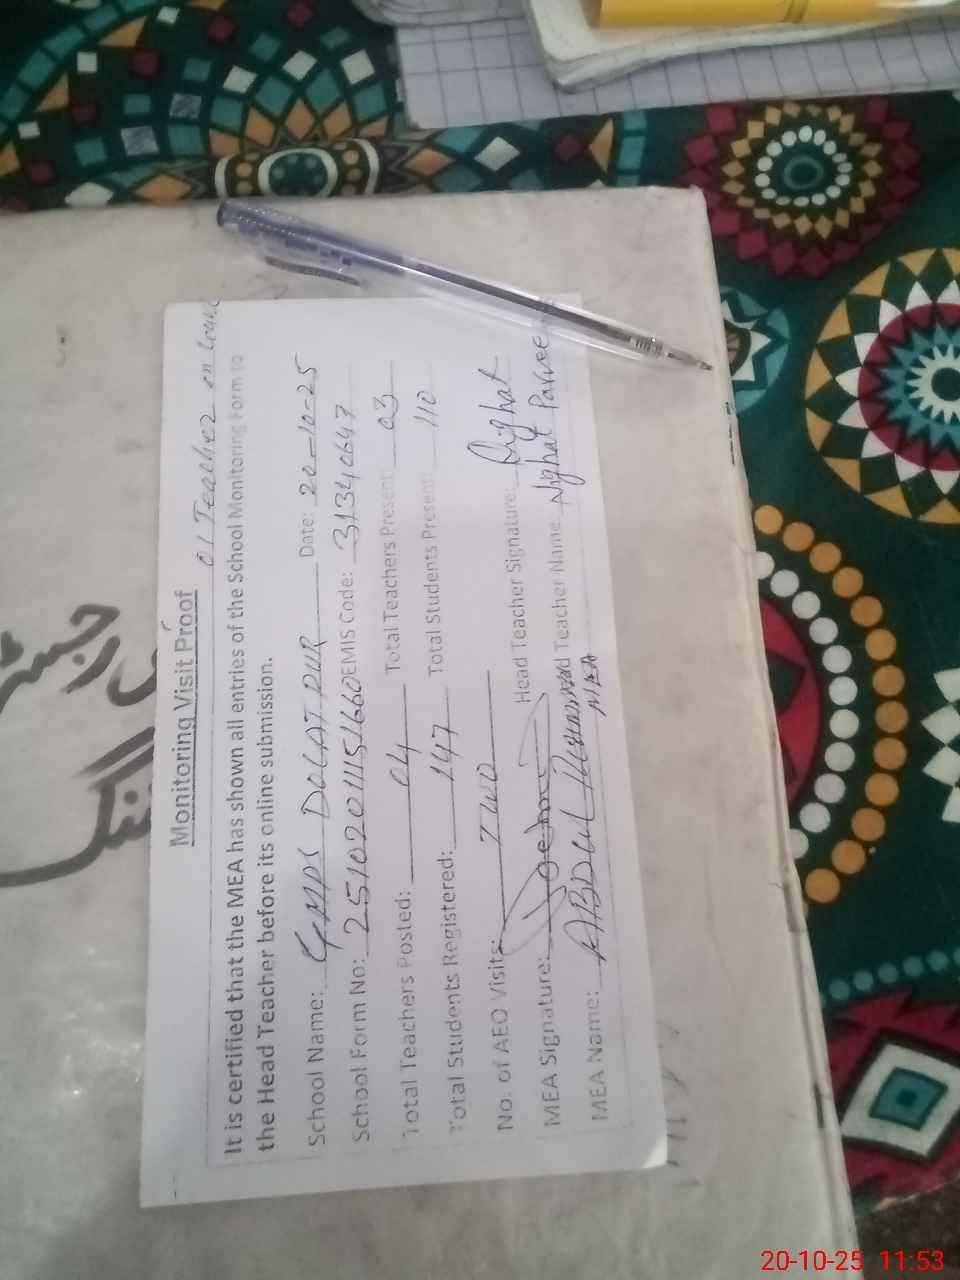 Monitoring Visit Proof
01 Teacher on Leave
It is certified that the MEA has shown all entries of the School Monitoring Form to
the Head Teacher before its online submission.
School Name: GMPS DOLATPUR Date: 20-10-25
School Form No: 25102011151660 EMIS Code: 31340647
Total Teachers Posted: 04 Total Teachers Present: 03
Total Students Registered: 147 Total Students Present: 110
No. of AEO Visits: TWO
MEA Signature: Head Teacher Signature: Nighat
MEA Name: ABDUL Head Teacher Name: Nighat Parveen
MEA
رجسٹر
20-10-25 11:53